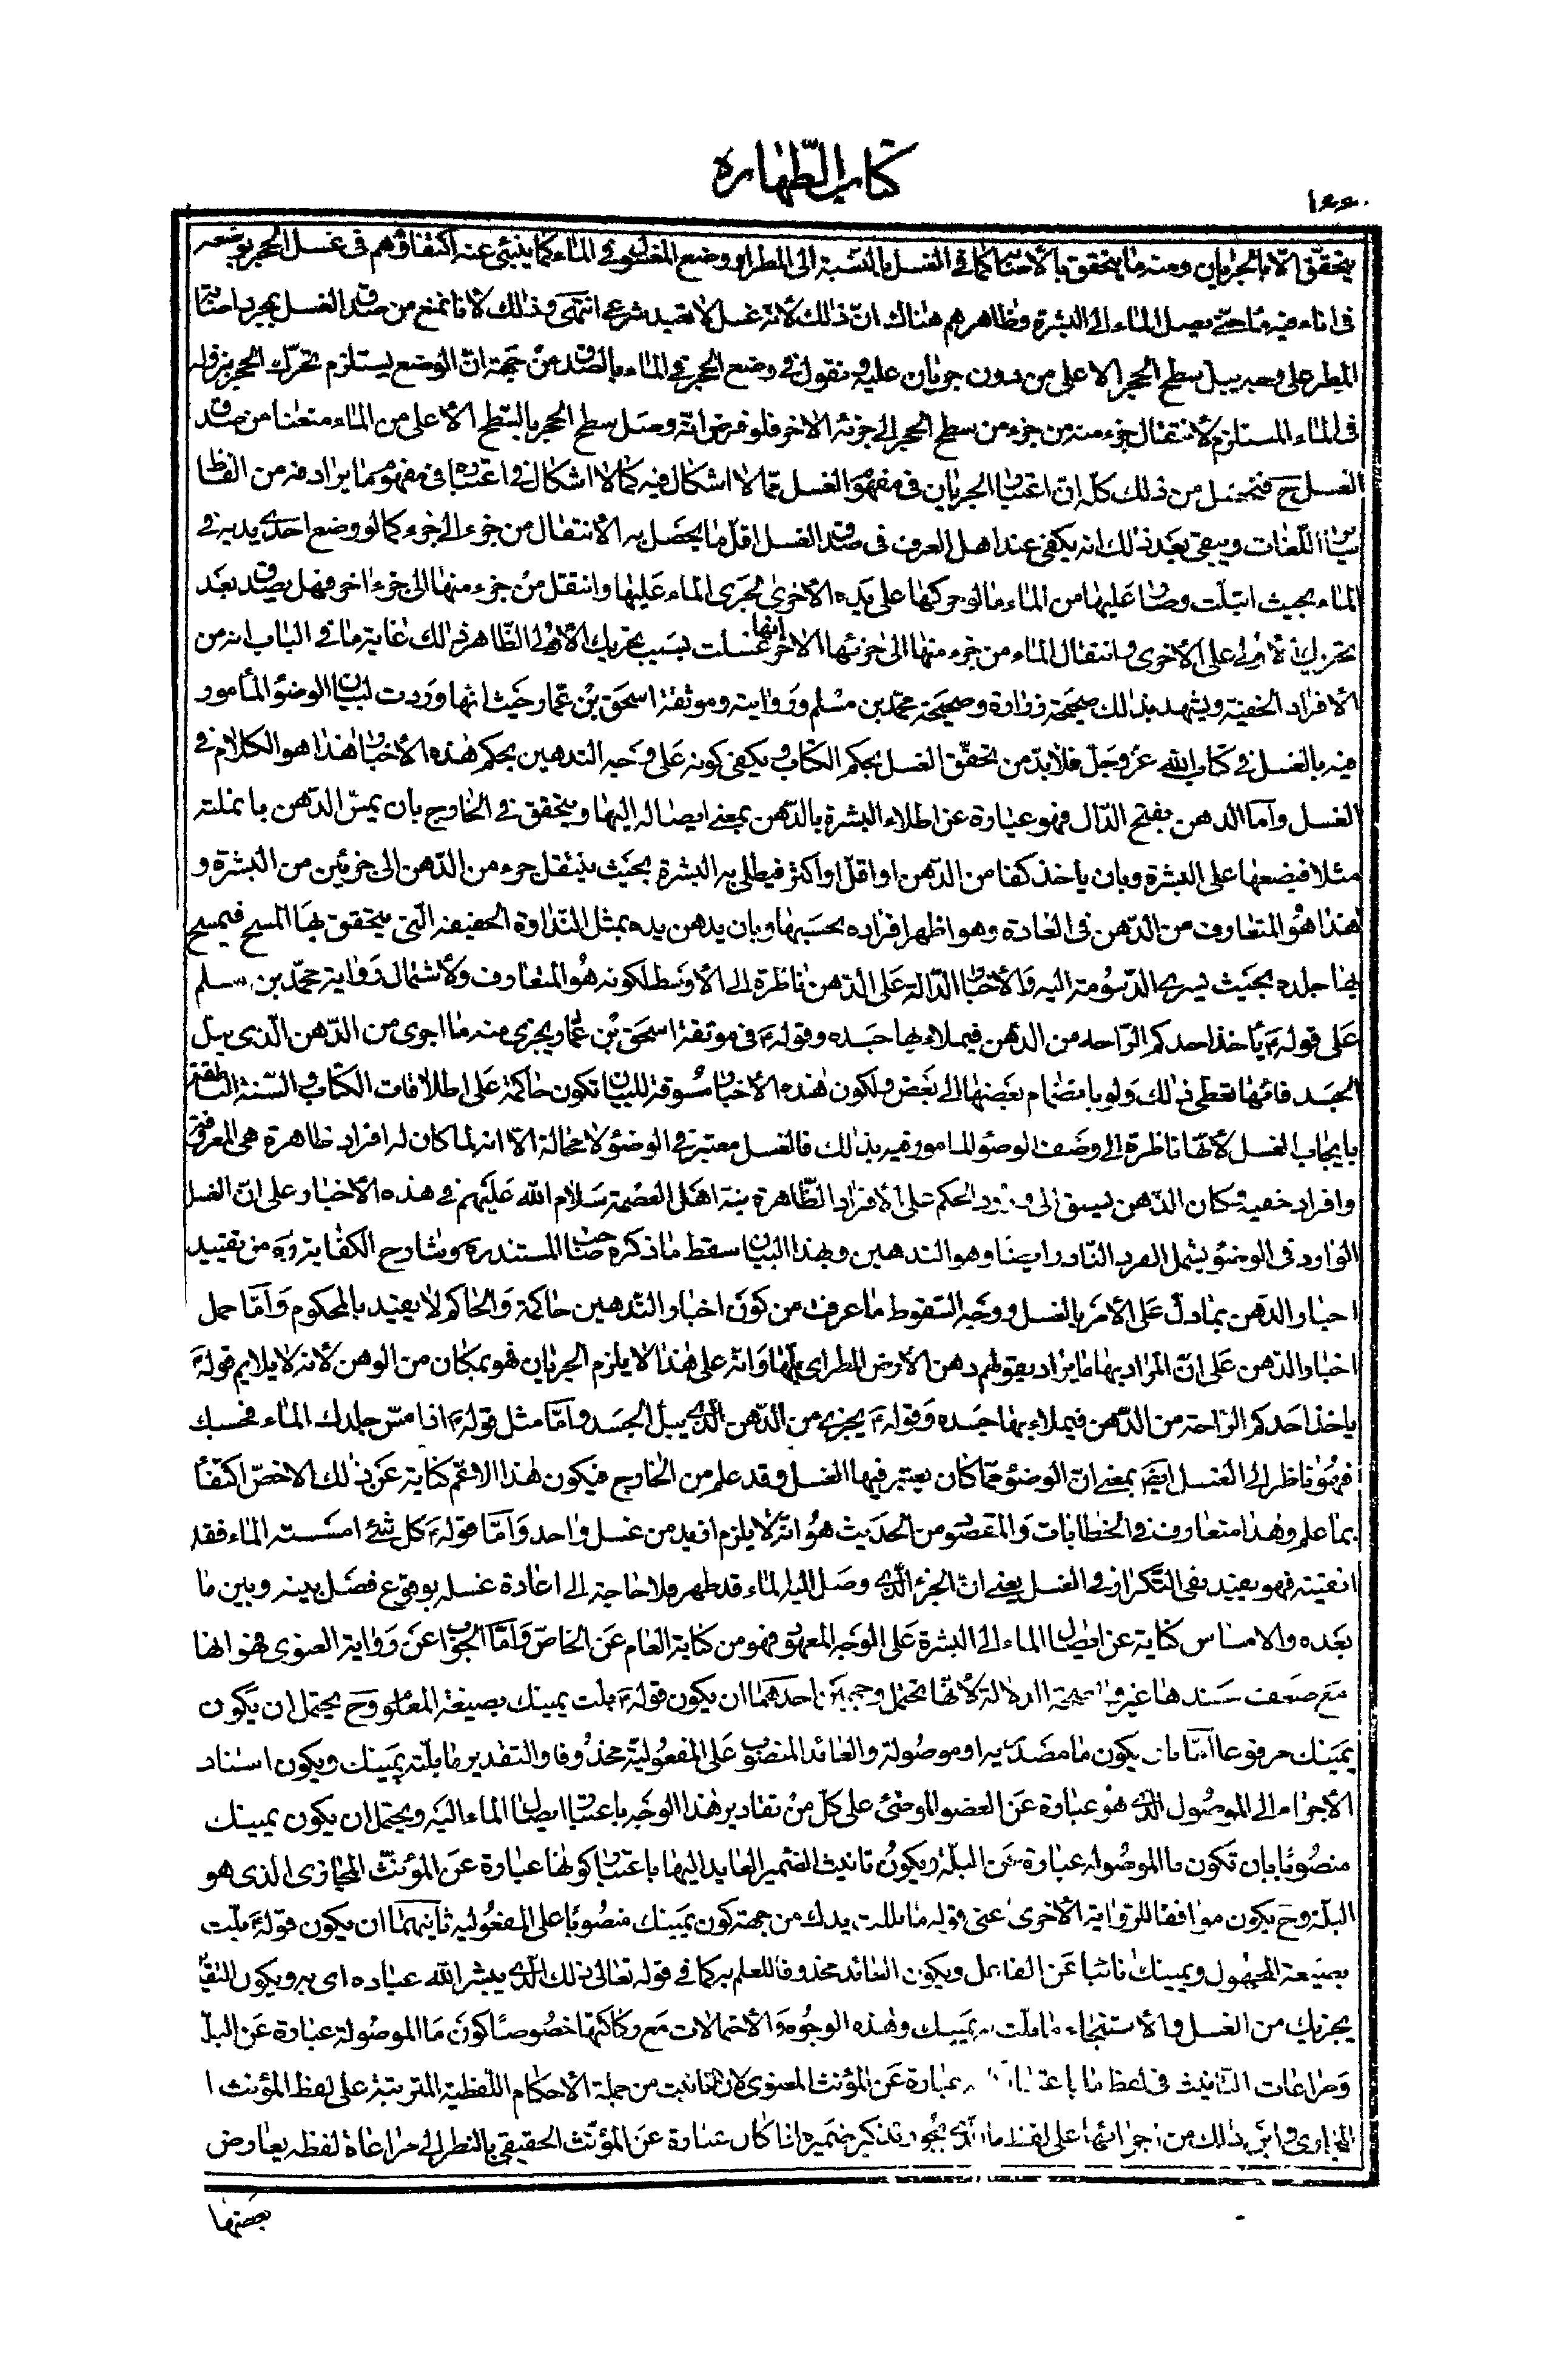 كتاب الطّهارة
١٤٤٠
يتحقّق الّا بالجريان ومنه ما يتحقق بالأصابة كما في الغسل بالنّسبة الى المطر او وضع المغسول في الماء كما ينبئ عنه اكتفاؤهم في غسل الحجر بوضعه
في اناء فيه ماء حتّى يصل الماء الى البشرة وظاهرهم هناك انّ ذلك لأنّه غسل لا تعبد شرعي انتهى وذلك لأنا نمنع من صدق الغسل بمجرد اصابة
المطر على وجه يبل سطح الحجر الاعلى من دون جريان عليه ونقول في وضع الحجر في الماء بالصّدق من جهة انّ الوضع يستلزم تحرّك الحجر بنزوله
في الماء المستلزم لأنتقال جزء منه من جزء من سطح الحجر الى جزئه الاخر فلو فرض انّه وصل سطح الحجر بالسّطح الأعلى من الماء منعنا من صدق
الغسل ح فتحصّل من ذلك كلّه انّ اعتبار الجريان في مفهوم الغسل ممّا لا اشكال فيه كما لا اشكال في اعتباره في مفهوم ما يرادفه من الفاظ
سائر اللّغات ويبقى بعد ذلك انه يكفي عند اهل العرف في صدق الغسل اقلّ ما يحصل به الأنتقال من جزء الى جزء كما لو وضع احدى يديه في
الماء بحيث ابتلّت وصار عليها من الماء ما لو حركها على يده الأخرى لجرى الماء عليها وانتقل من جزء منها الى جزء اخر فهل يصدق بعد
تحريك الأولى على الأخرى وانتقال الماء من جزء منها الى جزئها الاخر انها غسلت بسبب تحريك الأولى الظّاهر ذلك غاية ما في الباب انه من
الأفراد الخفية ويشهد بذلك صحيحة زرارة وصحيحة محمّد بن مسلم وروايته وموثقة اسحق بن عمّار حيث انها وردت لبيان الوضوء المأمور
فيه بالغسل في كتاب الله عزّ وجلّ فلا بدّ من تحقّق الغسل بحكم الكتاب ويكفي كونه على وجه التدهين بحكم هذه الأخبار هذا هو الكلام في
الغسل وامّا الدهن بفتح الدّال فهو عبارة عن اطلاء البشرة بالدّهن بمعنى ايصاله اليها ويتحقق في الخارج بان يمسّ الدّهن بانملته
مثلا فيضعها على البشرة وبان ياخذ كفا من الدّهن او اقلّ او اكثر فيطلي به البشرة بحيث ينتقل جزء من الدّهن الى جزئين من البشرة و
هذا هو المتعارف من الدّهن في العادة وهو اظهر افراده بحسبها وبان يدهن يده بمثل النّداوة الخفيفة الّتي يتحقق بها المسح فيمسح
بها جلده بحيث يسري الدّسومة اليه والأخبار الدّالة على الدّهن ناظرة الى الأوسط لكونه هو المتعارف ولأشتمال رواية محمّد بن مسلم
على قوله ع يأخذ احدكم الرّاحة من الدّهن فيملاء بها جسده وقوله ع في موثقة اسحق بن عمّار ويجزي منه ما اجرى من الدّهن الّذي يبلّ
الجسد فانّها تعطي ذلك ولو بانضمام بعضها الى بعض ولكون هذه الأخبار مسوقة للبيان تكون حاكمة على اطلاقات الكتاب والسّنة الناطقة
بايجاب الغسل لأنّها ناظرة الى وصف الوضوء المامور فيه بذلك فالغسل معتبر في الوضوء لا محالة الّا انه لما كان له افراد ظاهرة هي المعروفة
وافراد خفية وكان الذّهن يسبق الى ورود الحكم على الأفراد الظّاهرة نبّه اهل العصمة سلام الله عليهم في هذه الأخبار على انّ الغسل
الوارد في الوضوء يشمل الفرد النّادر ايضا وهو التدهين وبهذا البيان سقط ما ذكره صاحب المستند ره وشارح الكفاية ره من تقييد
اخبار الدّهن بما دلّ على الأمر بالغسل ووجه السّقوط ما عرفت من كون اخبار التّدهين حاكمة والحاكم لا يقيّد بالمحكوم وامّا حمل
اخبار الدّهن على انّ المراد بها ما يراد بقولهم دهن الأرض المطر اي بلّها وانّه على هذا لا يلزم الجريان فهو بمكان من الوهن لأنه لا يلايم قوله ع
ياخذ احدكم الرّاحة من الدّهن فيملاء بها جسده وقوله ع يجزي من الدّهن الّذي يبلّ الجسد وامّا مثل قوله ع اذا مسّ جلدك الماء فحسبك
فهو ناظر الى الغسل ايضا بمعنى انّ الوضوء ممّا كان يعتبر فيها الغسل وقد علم من الخارج فيكون هذا الاعّم كناية عن ذلك الاخصّ اكتفاءً
بما علم وهذا متعارف في الخطابات والمقصود من الحديث هو انّه لا يلزم ازيد من غسل واحد وامّا قوله ع كل شيء امسسته الماء فقد
انقيته فهو يفيد نفي التّكرار في الغسل يعني انّ الجزء الّذي وصل اليه الماء قد طهر فلا حاجة الى اعادة غسله بوقوع فصل بينه وبين ما
بعده والامساس كناية عن ايصال الماء الى البشرة على الوجه المعهود فهو من كناية العام عن الخاصّ وامّا الجواب عن رواية الغنوي فهو انها
مع ضعف سندها غير واضحة الدلالة لأنّها تحتمل وجهين احدهما ان يكون قوله ع بلت يمينك بصيغة المعلوم وح يحتمل ان يكون
يمينك مرفوعا امّا بان يكون ما مصدرية او موصولة والعائد المنصوب على المفعوليّة محذوفا والتقدير ما بلّته يمينك ويكون اسناد
الأجزاء الى الموصول الّذي هو عبارة عن العضو الموضئ على كلّ من تقادير هذا الوجه باعتبار ايصال الماء اليه ويحتمل ان يكون يمينك
منصوبا بان تكون ما الموصولة عبارة عن البلّة ويكون تانيث الضّمير العايد اليها باعتبار كونها عبارة عن المؤنّث المجازي الّذي هو
البلّة وح يكون موافقا للرّواية الأخرى اعني قوله ما بللت يدك من جهة كون يمينك منصوبا على المفعوليه ثانيهما ان يكون قوله ع بلّت
بصيغة المجهول ويمينك نائبا عن الفاعل ويكون العائد محذوفا للعلم به كما في قوله تعالى ذلك الّذي يبشر الله عباده اي به ويكون التقدير
يجزيك من الغسل والأستنجاء ما بلّت به يمينك وهذه الوجوه والأحتمالات مع ركاكتها خصوصا كون ما الموصولة عبارة عن البلّة
ومراعات التّانيث في لفظ ما باعتبار عبارة عن المؤنث المعنوي لان التانيث من جملة الأحكام اللّفظية المترتبة على لفظ المؤنث
المجازي واين ذلك من اجرائها على لفظ ما الّذي يجوز تذكير ضميره اذا كان عبارة عن المؤنّث الحقيقي بالنظر الى مراعاة لفظه يعارض
بعضها